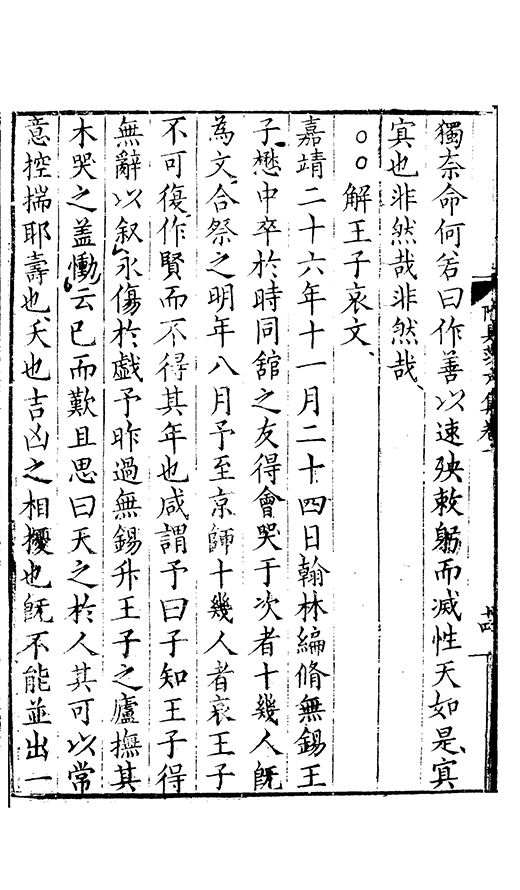 獨柰命何若曰作善以速殃敕躬而滅性天如是寘
寘也非然哉非然哉
○○解王子哀文
嘉靖二十六年十一月二十四日翰林編脩無錫王
子懋中卒於時同舘之友得會哭于次者十幾人旣
為文合祭之明年八月予至京師十幾人者哀王子
不可復作賢而不得其年也咸謂予曰子知王子得
無辭以叙永傷於戲予昨過無錫升王子之廬撫其
木哭之盖慟云已而歎且思曰天之於人其可以常
意控揣耶壽也夭也吉凶之相擾也旣不能並出一